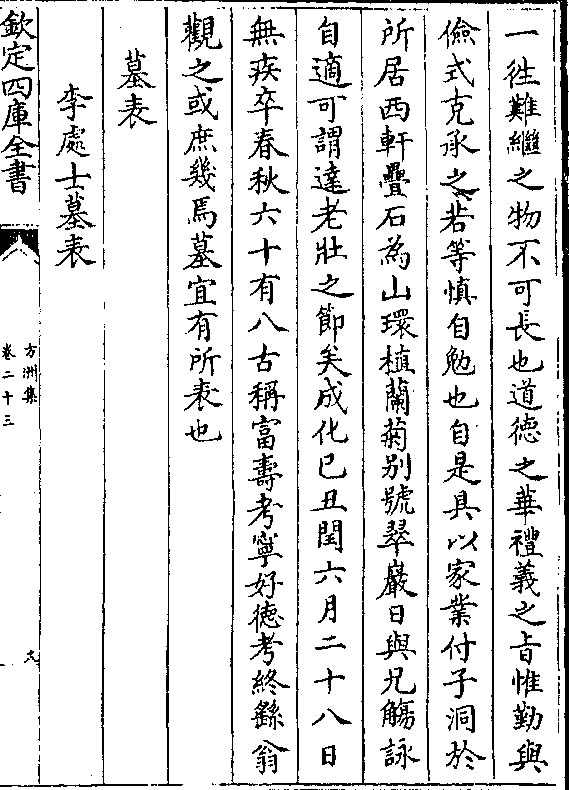 一徃難繼之物不可長也道德之華禮義之旨惟勤與
儉式克承之若等慎自勉也自是具以家業付子洞於
所居西軒疊石為山環植蘭菊别號翠巖日與兄觴詠
自適可謂達老壯之節矣成化已丑閏六月二十八日
無疾卒春秋六十有八古稱富壽考寧好徳考終繇翁
觀之或庶幾焉墓宜有所表也
墓表
李處士墓表
欽定四庫全書
方洲集
卷二十三